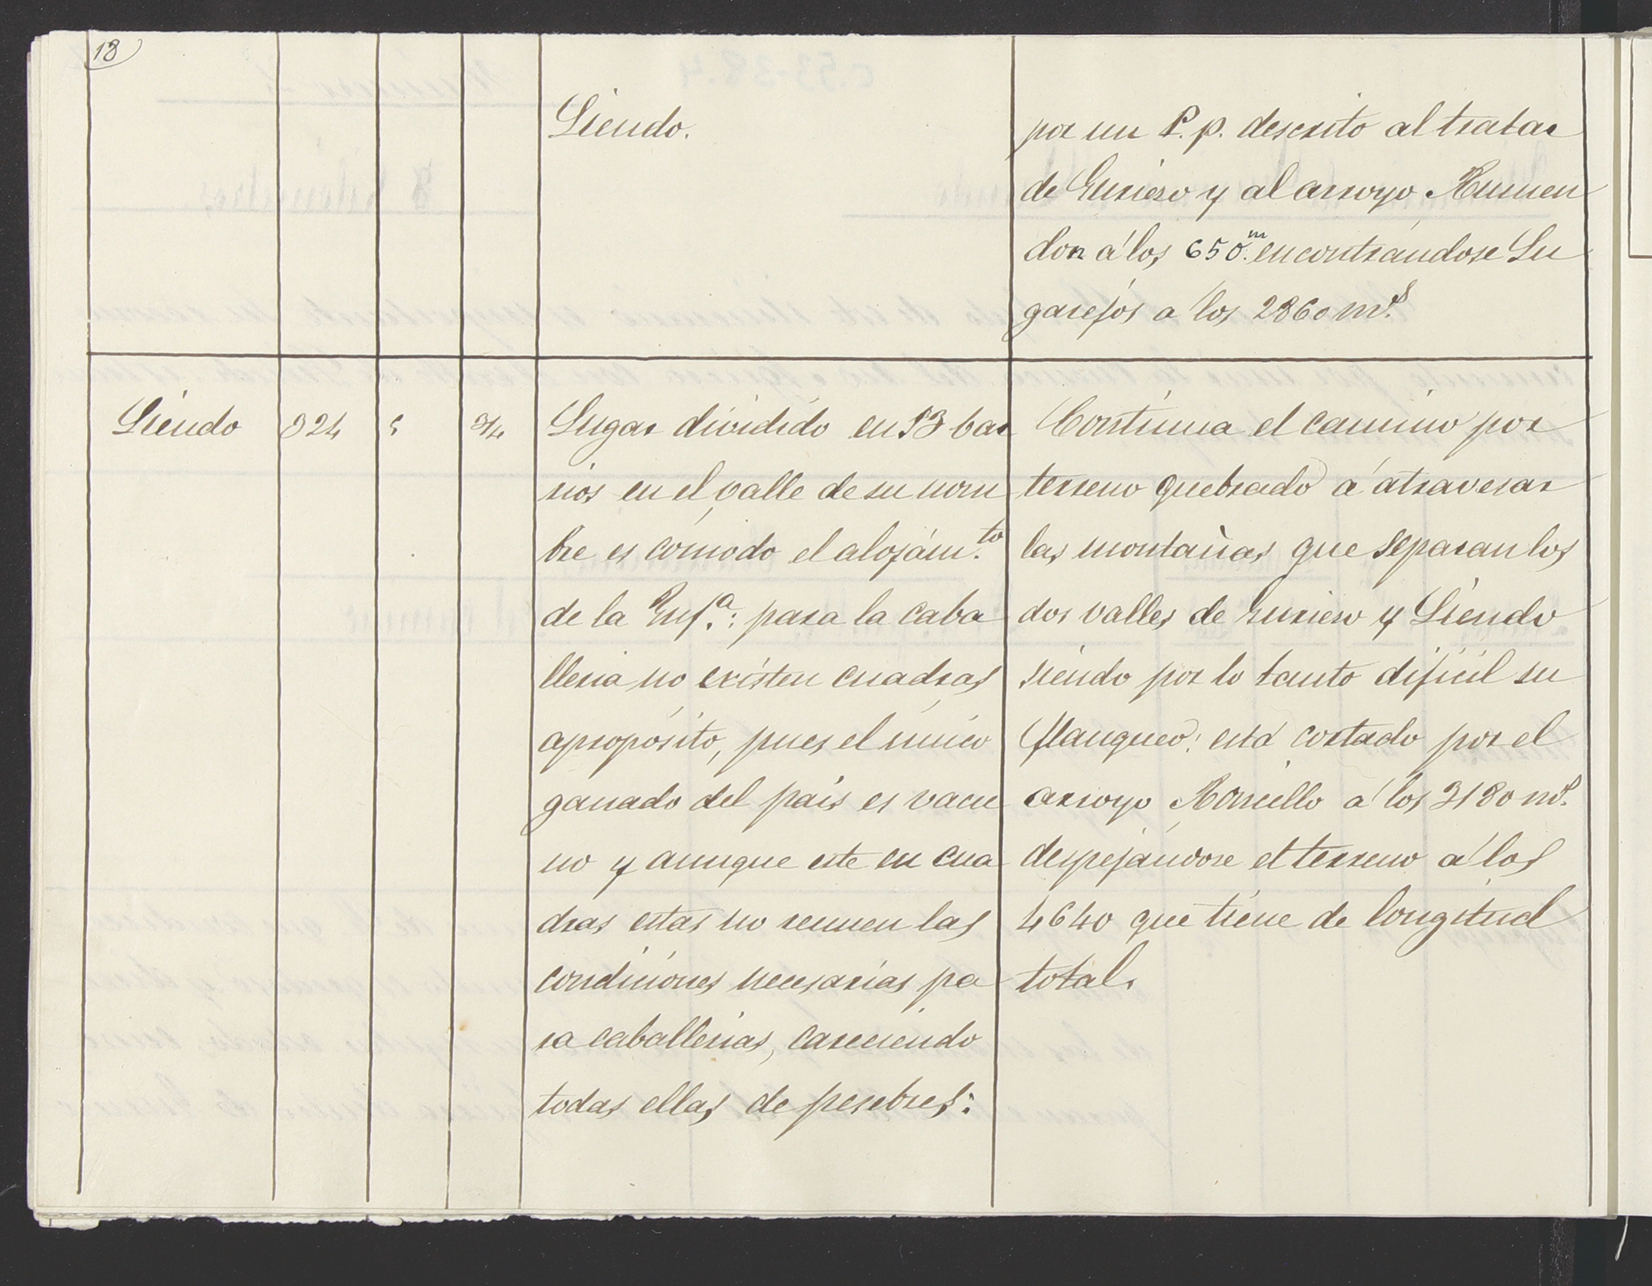 18
Liendo.
por un P. p. descrito al tratar
de Guriezo y al arroyo Rumen
don á los 650.m encontrándose Lu
garejos a los 2860 m.s
Liendo 324 5 3/4
Lugar dividido en 13 bar
rios en el valle de su nom
bre es cómodo el alojám.to
de la Inf.a: para la caba
lleria no existen cuadras
apropósito, pues el único
ganado del país es vacu
no y aunque este en cua
dras estas no reunen las
condiciones necesarias pa
ra caballerias, careciendo
todas ellas de pesebres:
Continua el camino por
terreno quebrado á atravesar
las montañas que separan los
dos valles de Guriezo y Liendo
siendo por lo tanto dificil su
flanqueo: está cortado por el
arroyo á los 3180 m.s
despejándose el terreno á los
4640 que tiene de longitud
total.